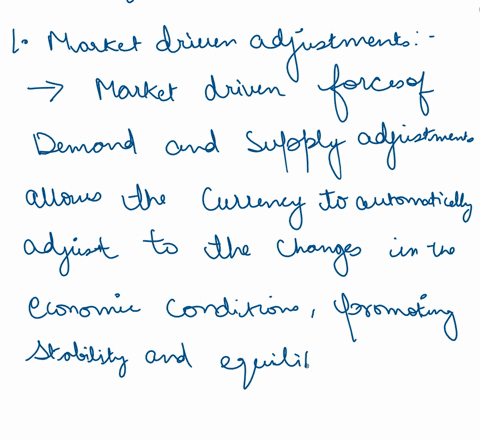 1. Market driven adjustments:-
→ Market driven forces of
Demand and Supply adjustments
allows the Currency to automatically
adjust to the changes in the
economic conditions, promoting
stability and equili